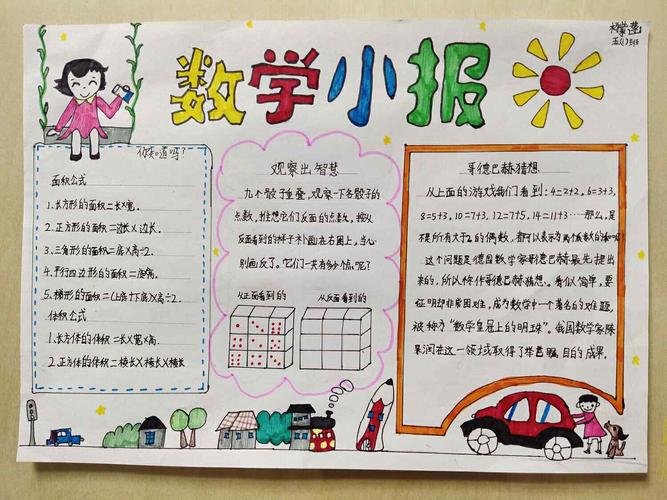 数学小报
五(1)班
你知道吗?
面积公式
1.长方形的面积=长X宽。
2.正方形的面积=边长X边长。
3.三角形的面积=底X高÷2。
4.平行四边形的面积=底X高。
5.梯形的面积=(上底+下底)X高÷2.
体积公式
1.长方体的体积=长X宽X高.
2.正方体的体积=棱长X棱长X棱长
观察出智慧
九个骰子重叠,观察一下各骰子的
点数,推想它们反面的点数,按从
反面看到的样子补画在右图上,当心
别画反了。它们一共有多少点呢?
从正面看到的
从反面看到的
哥德巴赫猜想
从上面的游戏我们看到:4=2+2, 6=3+3,
8=5+3, 10=7+3, 12=7+5, 14=11+3……那么,是
不是所有大于2的偶数,都可以表示为两个质数的和呢?
这个问题是德国数学家哥德巴赫最先提出
来的,所以称作哥德巴赫猜想。看似简单,要
证明却非常困难,成为数学中一个著名的难题,
被称为“数学皇冠上的明珠”。我国数学家陈
景润在这一领域取得了举世瞩目的成果。